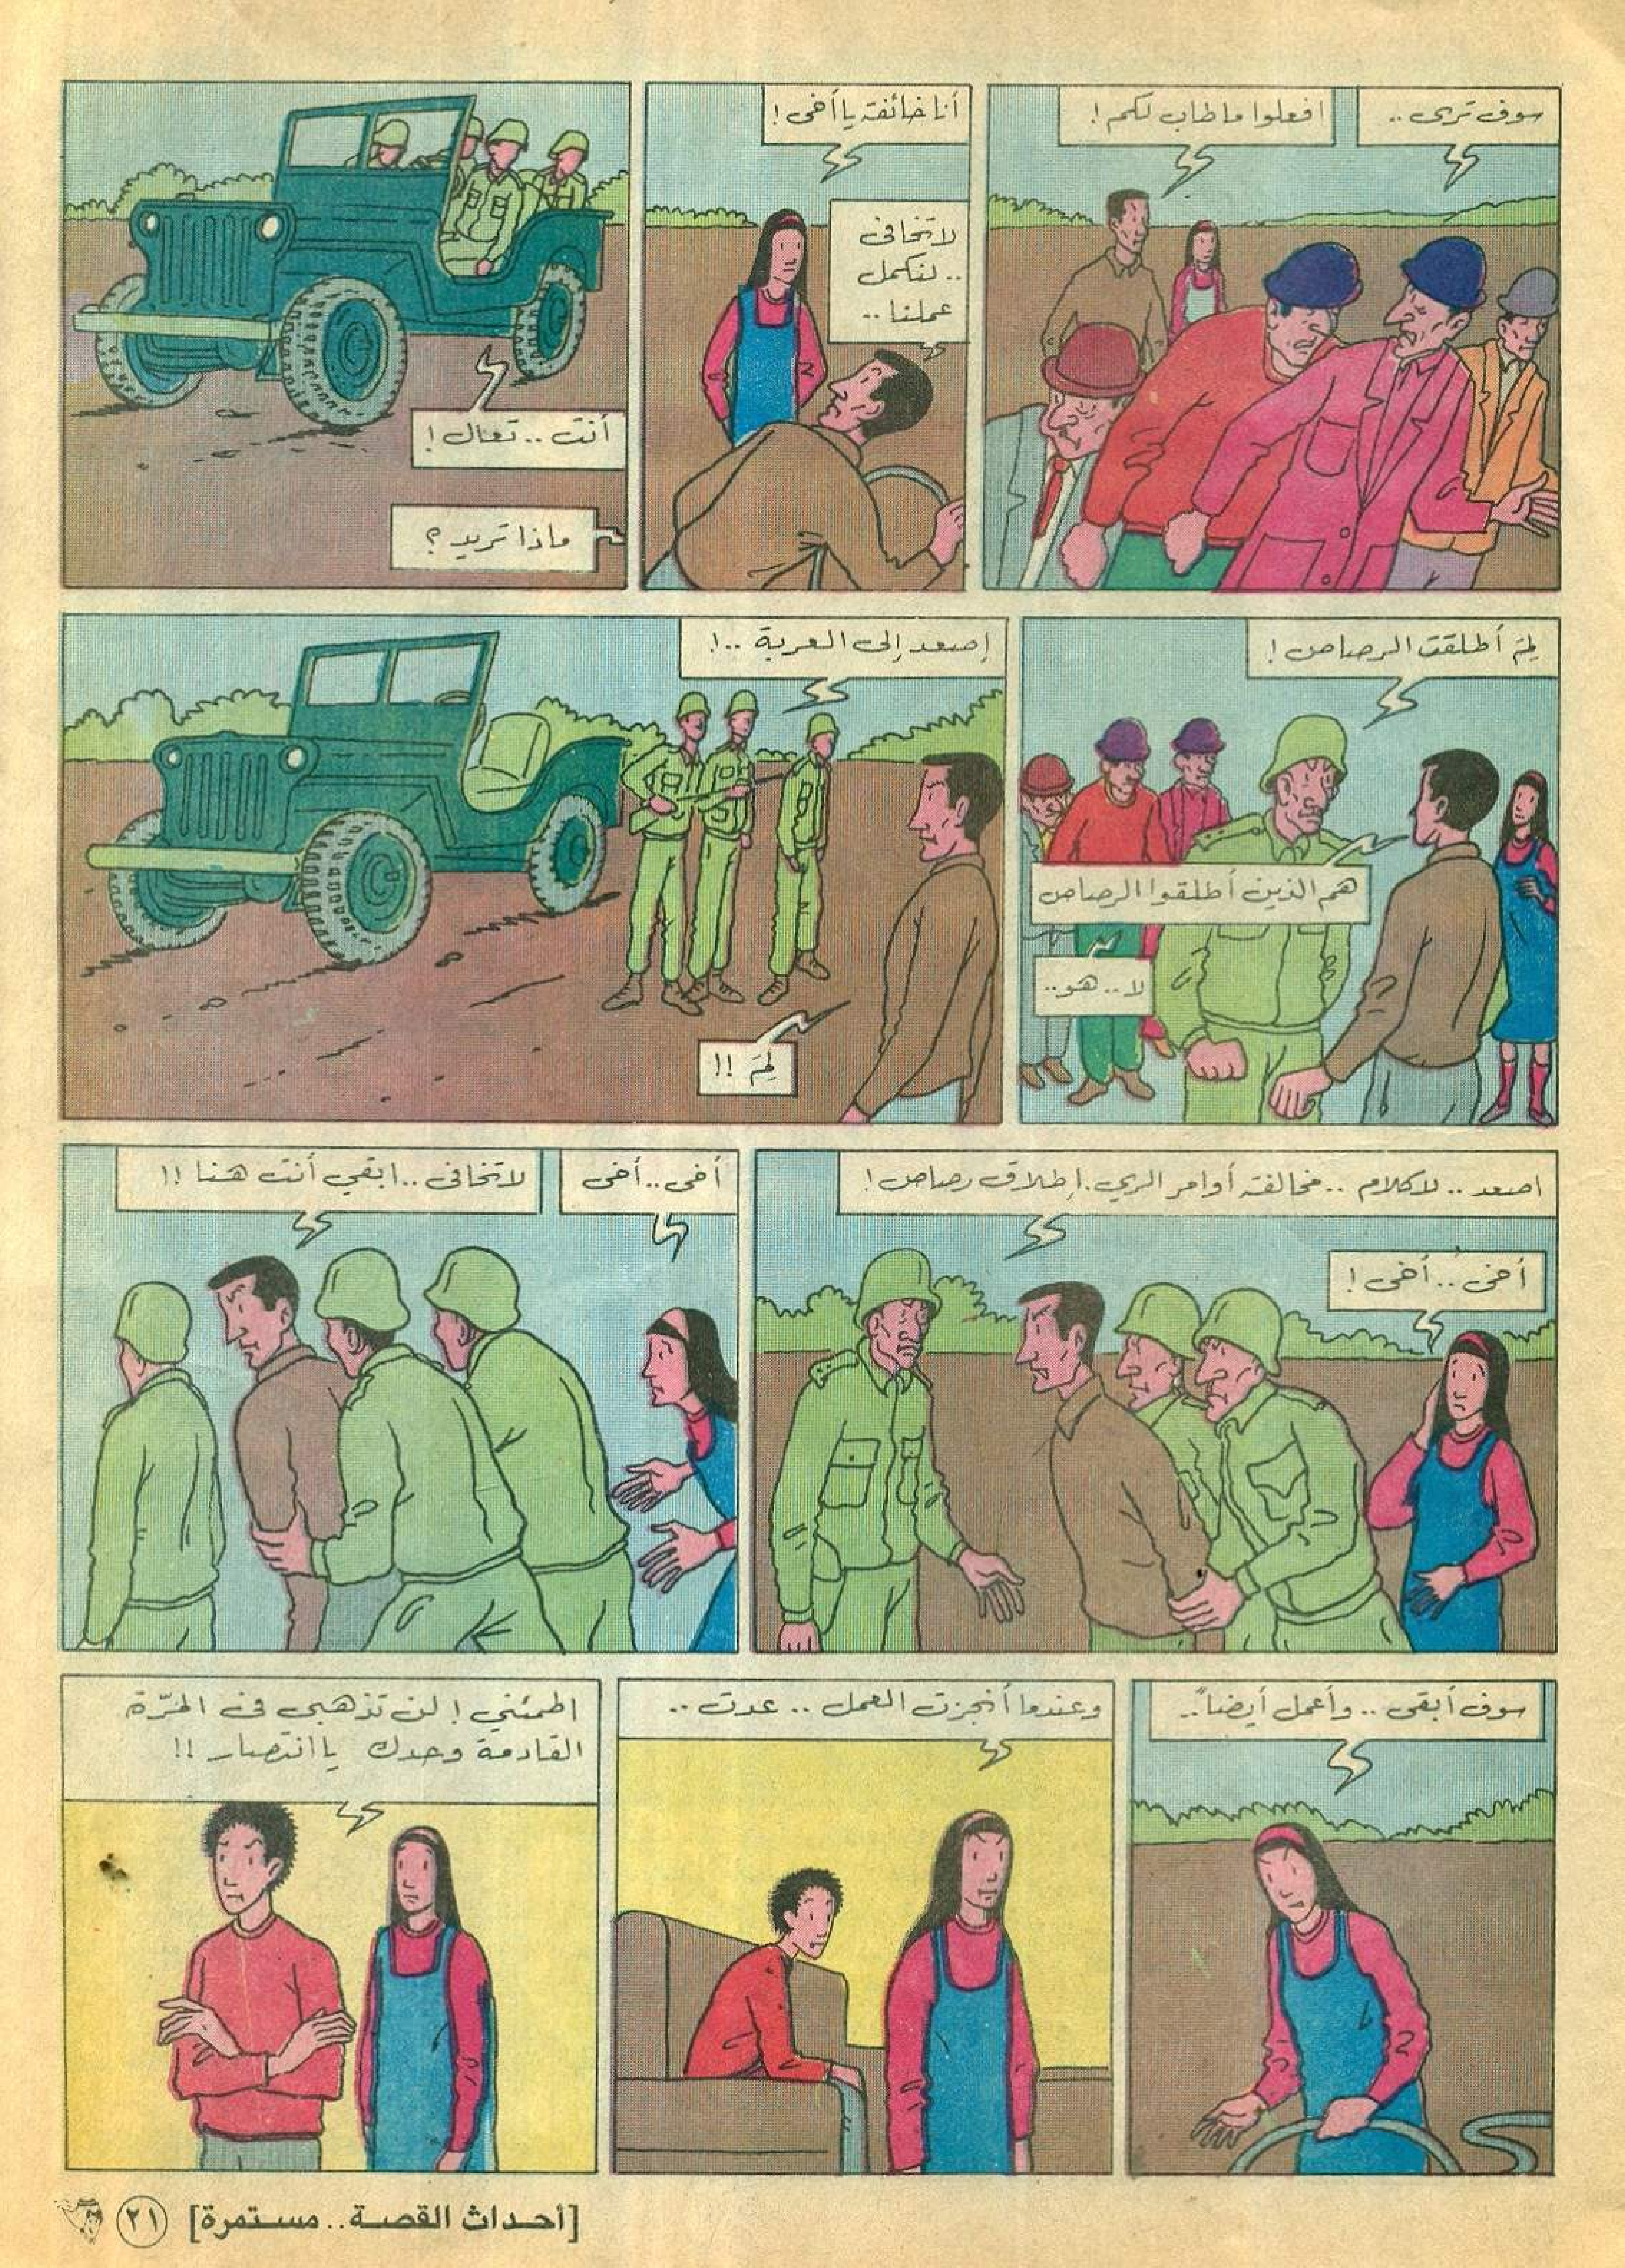 سوف ترى ..
افعلوا ما طاب لكم !
أنا خائفة يا أخي !
لا تخافي
.. لنكمل
عملنا ..
أنت .. تعال !
ماذا تريد ؟
لِمَ أطلقت الرصاص !
هم الذين أطلقوا الرصاص
لا .. هو ..
إصعد إلى العربة .. !
لِمَ !!
اصعد .. لا كلام .. مخالفة أوامر الري . إطلاق رصاص !
أخي .. أخي !
أخي .. أخي
لا تخافي .. ابقي أنت هنا !!
سوف أبقى .. وأعمل أيضاً ..
وعندما أنجزت العمل .. عدت ..
اطمئني ! لن تذهبي في المرّة
القادمة وحدك يا انتصار !!
[أحداث القصة .. مستمرة]
٢١